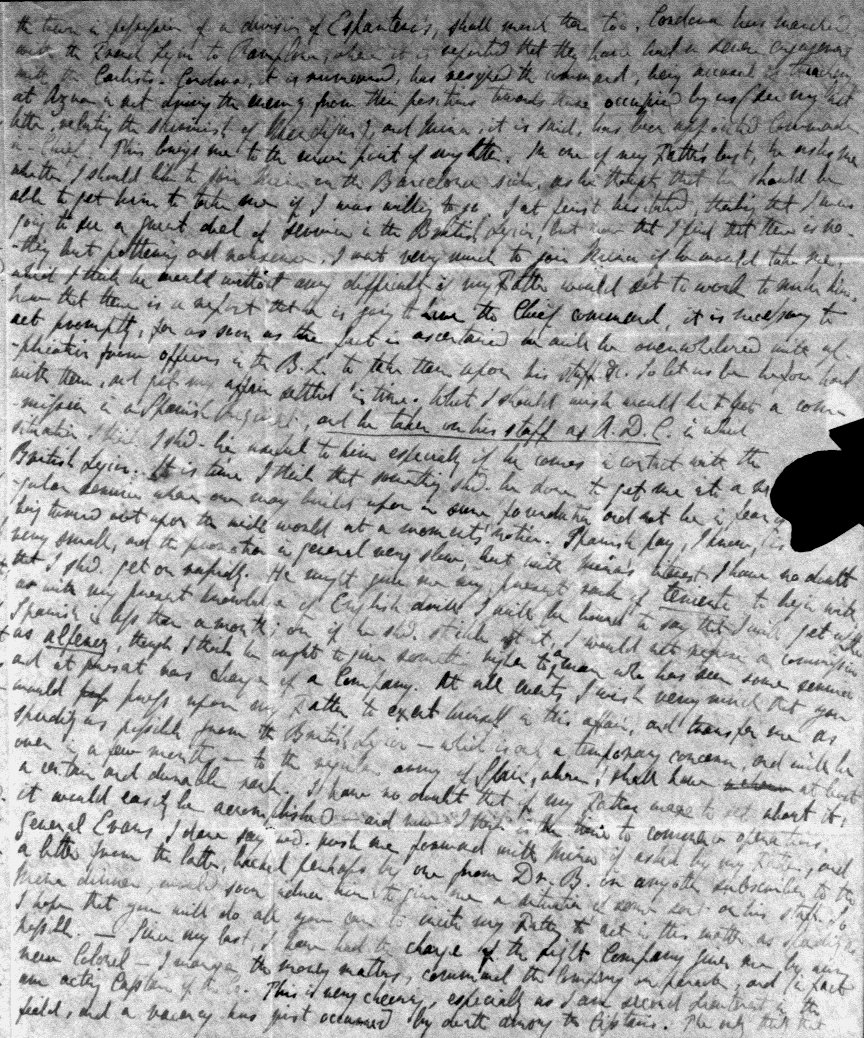 the town in possession of a division of Espartero's, shall march there too. Cordova has marched
with the French Legion to Pamplona, where it is reported that they have had a severe engagement
with the Carlists. Cordova, it is rumoured, has resigned the command, being accused of treachery
at in not driving the enemy from their positions towards those occupied by us (see my last
letter, relating the skirmish of Mendigur), and Mina, it is said, has been appointed Commander
in Chief. This brings me to the main point of my letter. In one of my Father's last, he asks me
whether I should like to join Mina on the Barcelona side, as he thought that he should be
able to get him to take me if I was willing to go. I at first hesitated, thinking that I was
going to see a great deal of service in the British Legion, but now that I find that there is no-
-thing but pottering and nonsense, I want very much to join Mina if he would take me,
which I think he would without any difficulty if my Father would set to work to make him.
Now that there is a report that he is going to have the Chief command, it is necessary to
act promptly, for as soon as the fact is ascertained he will be overwhelmed with ap-
-plications from officers in the B.L. to take them upon his staff &c. So let us be before hand
with them, and get my affair settled in time. What I should wish would be to get a com-
-mission in a Spanish regiment, and be taken on his staff as A.D.C. in which
situation I think I shd. be useful to him especially if he comes in contact with the
British Legion. It is time I think that something shd. be done to get me into a re
gular service where one may build upon some foundation and not be in fear of
being turned out upon the wide world at a moment's notice. Spanish pay, I know, is
very small, and the promotion in general very slow, but with Mina's interest I have no doubt
that I shd. get on rapidly. He might give me my present rank of teniente to begin with
as with my present knowledge of English drill I will be bound to say that I will get up the
Spanish in less than a month; or if he shd. stick at it, I would not refuse a commission
as alferez, though I think he ought to give something higher to a man who has seen some service
and at present has charge of a Company. At all events, I wish very much that you
would press upon my Father to exert himself in this affair, and transfer me as
speedily as possible from the British Legion — which is only a temporary concern, and will be
over in a few months — to the regular army of Spain, where I shall have at least
a certain and durable rank. I have no doubt that if my Father were to set about it,
it would easily be accomplished — and now I think is the time to commence operations.
General Evans I dare say wd. push me forward with Mina if asked by my Father, and
a letter from the latter, backed perhaps by one from Dr. B. or any other subscriber to the
Mina dinner, would soon induce him to give me a situation of some sort on his staff. So
I hope that you will do all you can to incite my Father to act in this matter as speedily as
possible. — Since my last, I have had the charge of the Light Company given me by our
new Colonel — I manage the money matters, command the Company on parade, and in fact
am acting Captain of the Co. This is very cheering, especially as I am second lieutenant in the
field, and a vacancy has just occurred by death among the Captains. The only thing that